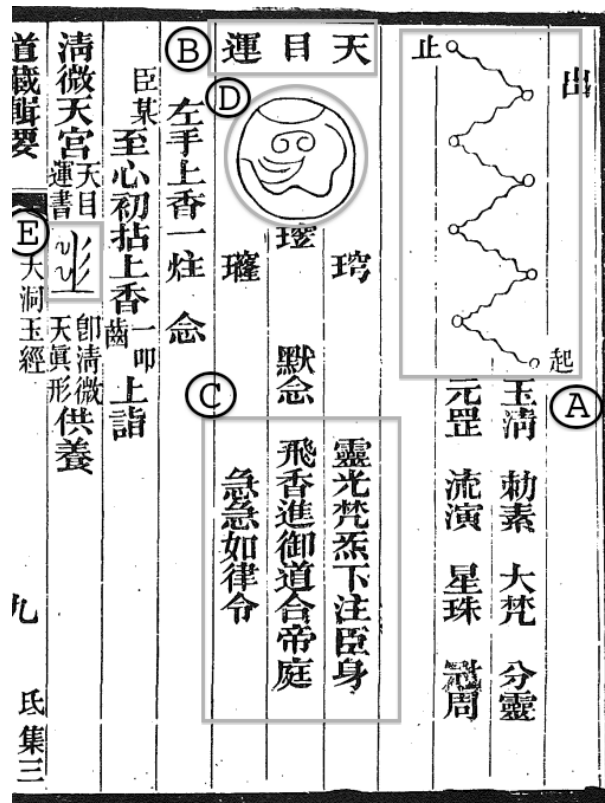 出
起
止
A
玉清 勅素 大梵 分靈
元罡 流演 星珠 周
B
天目運
D
C
靈光梵炁下注臣身
默念 飛香進御道合帝庭
急急如律令
左手上香一炷 念
臣某至心初拈上香一叩齒上詣
清微天宮天目運書 卽清微天眞形供養
E
道藏輯要 大洞玉經 九 氐集三